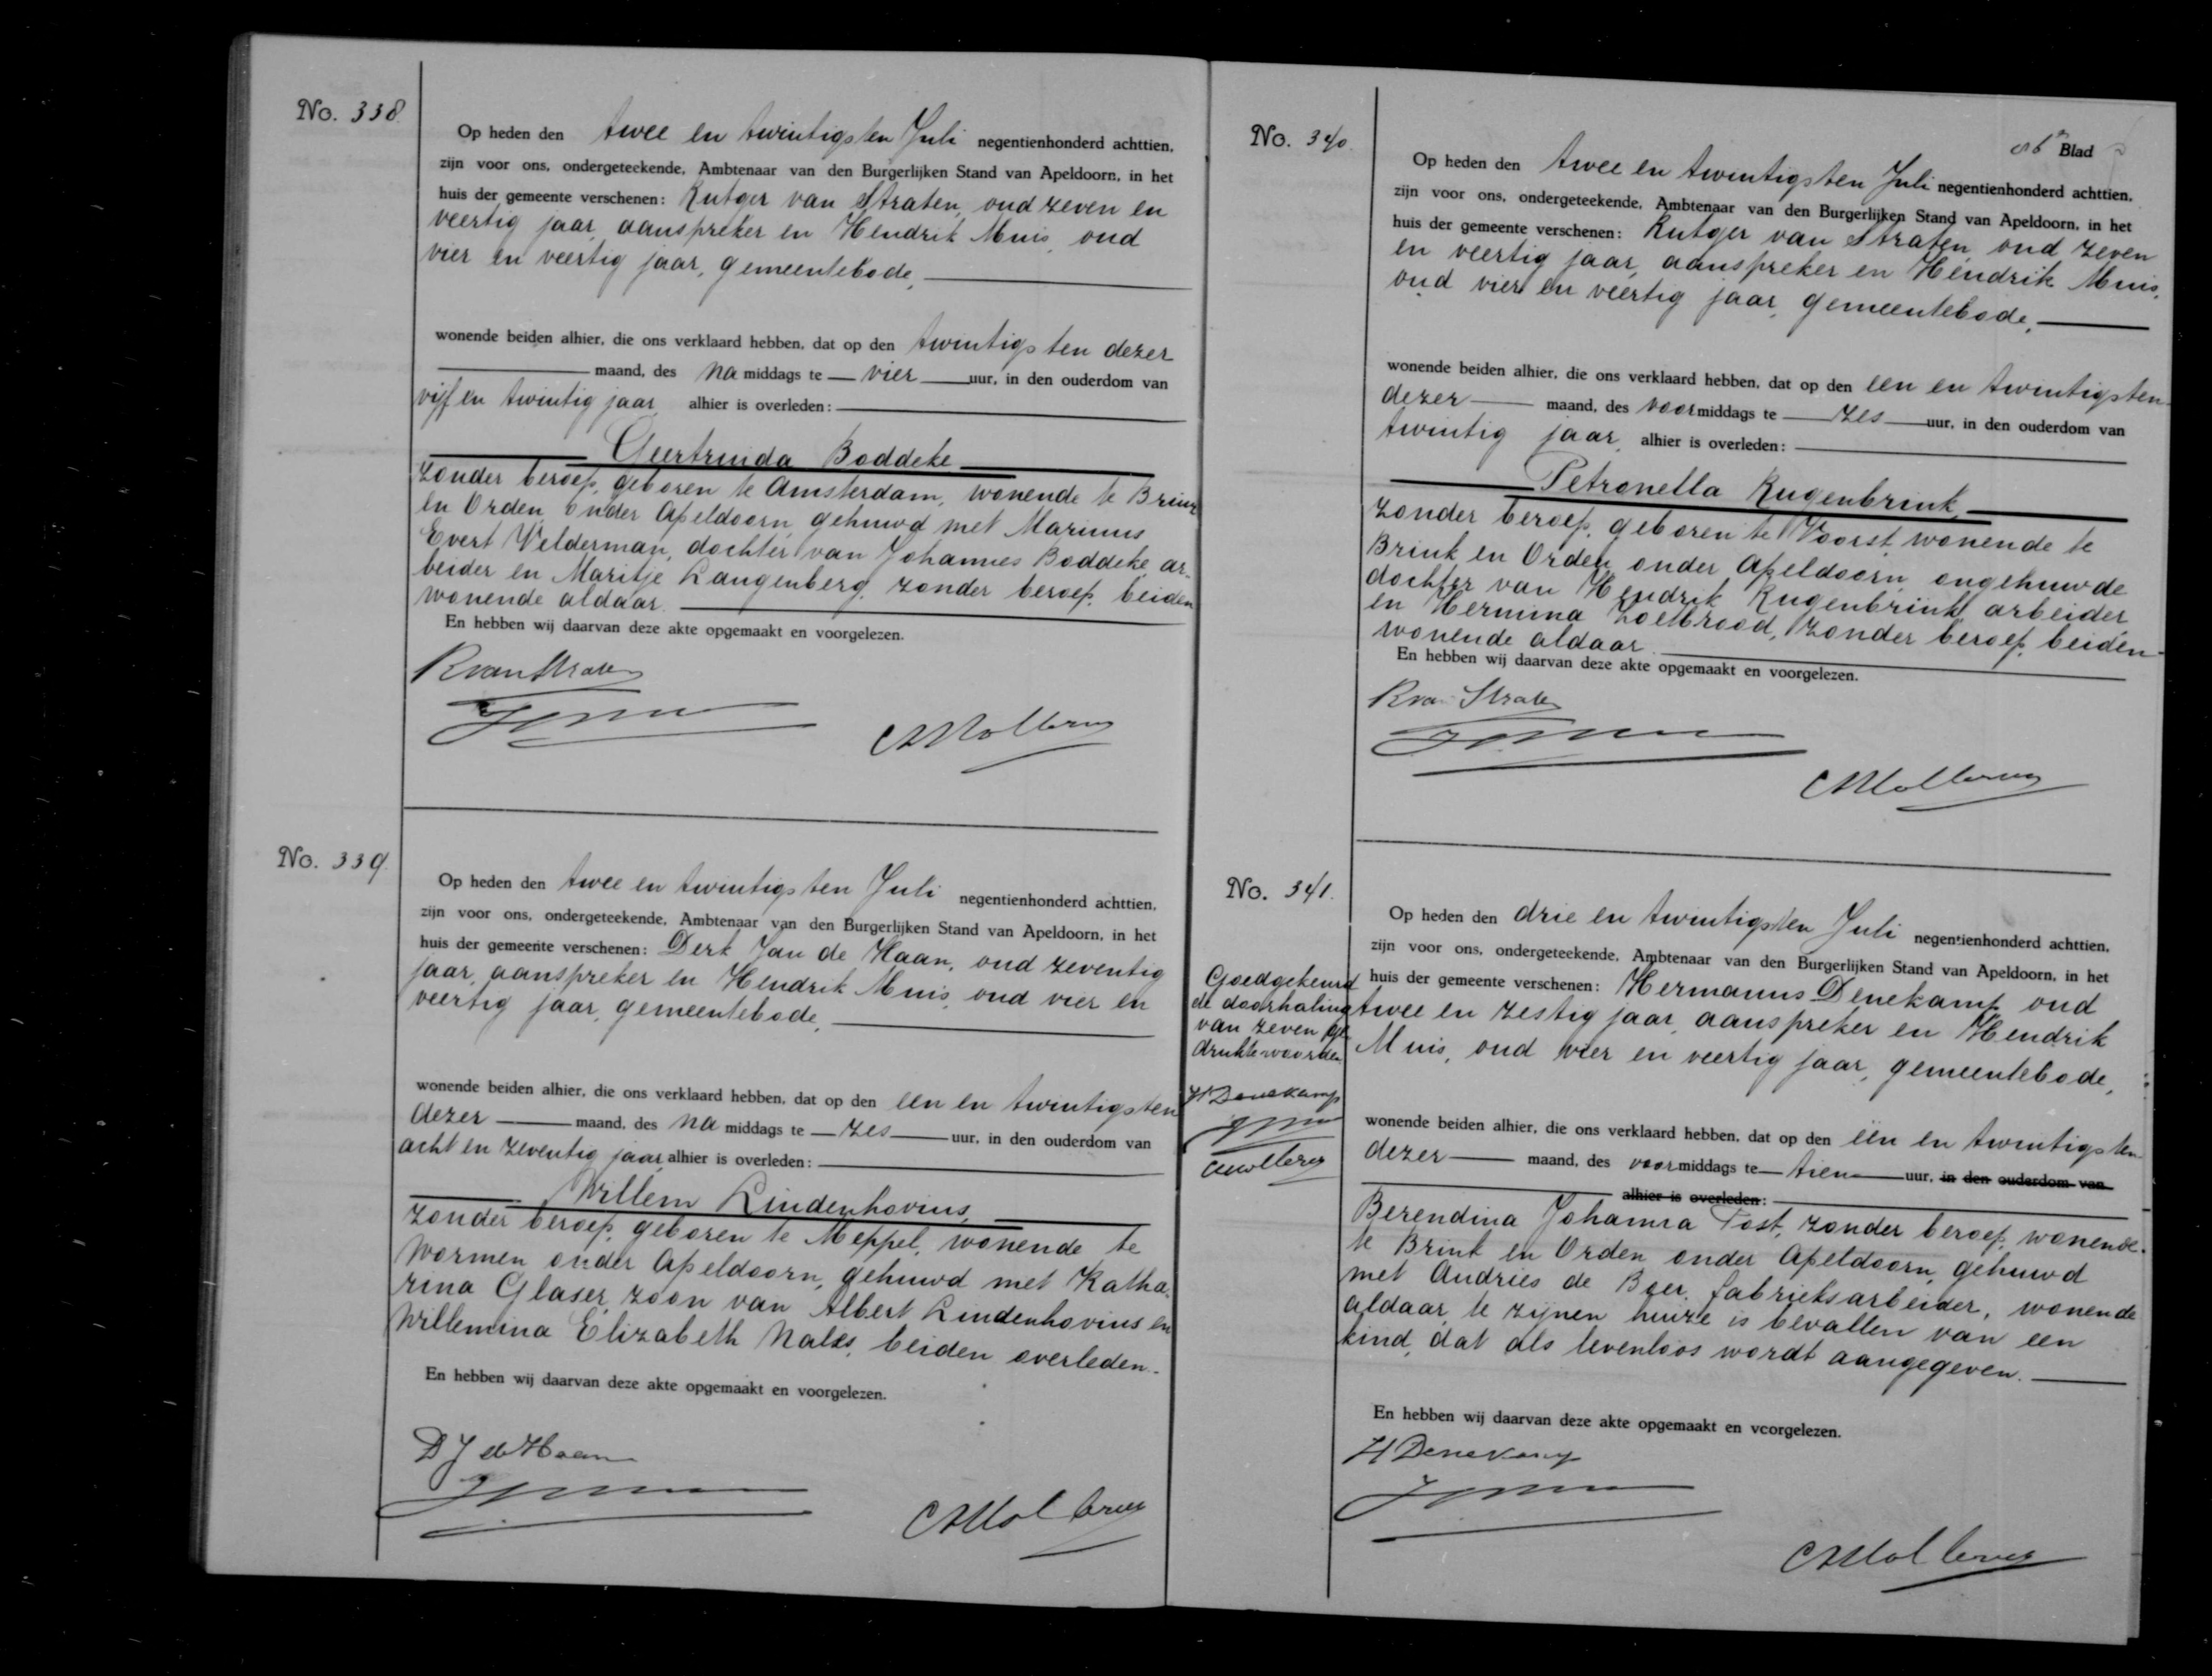 No. 338.
Op heden den twee en twintigsten Juli negentienhonderd achttien,
zijn voor ons, ondergeteekende, Ambtenaar van den Burgerlijken Stand van Apeldoorn, in het
huis der gemeente verschenen: Rutger van Straten, oud zeven en
veertig jaar, aanspreker en Hendrik Muis, oud
vier en veertig jaar, gemeentebode,
wonende beiden alhier, die ons verklaard hebben, dat op den twintigsten dezer
maand, des na middags te vier uur, in den ouderdom van
vijf en twintig jaar alhier is overleden:
Geertruida Boddeke
zonder beroep, geboren te Amsterdam, wonende te Brink
en Orden onder Apeldoorn, gehuwd met Marinus
Evert Velderman, dochter van Johannes Boddeke, ar-
beider en Maritje Langenberg, zonder beroep, beiden
wonende aldaar.
En hebben wij daarvan deze akte opgemaakt en voorgelezen.
R van Straten
No. 339.
Op heden den twee en twintigsten Juli negentienhonderd achttien,
zijn voor ons, ondergeteekende, Ambtenaar van den Burgerlijken Stand van Apeldoorn, in het
huis der gemeente verschenen: Derk Jan de Haan, oud zeventig
jaar, aanspreker en Hendrik Muis, oud vier en
veertig jaar, gemeentebode,
wonende beiden alhier, die ons verklaard hebben, dat op den een en twintigsten
dezer maand, des na middags te zes uur, in den ouderdom van
acht en zeventig jaar alhier is overleden:
Willem Lindenhovius,
zonder beroep, geboren te Meppel, wonende te
Wormen onder Apeldoorn, gehuwd met Katha-
rina Glaser, zoon van Albert Lindenhovius en
Willemina Elizabeth beiden overleden.
En hebben wij daarvan deze akte opgemaakt en voorgelezen.
D J de Haan
No. 340.
Blad
Op heden den twee en twintigsten Juli negentienhonderd achttien,
zijn voor ons, ondergeteekende, Ambtenaar van den Burgerlijken Stand van Apeldoorn, in het
huis der gemeente verschenen: Rutger van Straten, oud zeven
en veertig jaar, aanspreker en Hendrik Muis,
oud vier en veertig jaar, gemeentebode,
wonende beiden alhier, die ons verklaard hebben, dat op den een en twintigsten
dezer maand, des voormiddags te zes uur, in den ouderdom van
twintig jaar alhier is overleden:
Petronella Rugenbrink,
zonder beroep, geboren te Voorst, wonende te
Brink en Orden onder Apeldoorn, ongehuwde
dochter van Hendrik Rugenbrink, arbeider
en Hermina Zoetbrood, zonder beroep, beiden
wonende aldaar.
En hebben wij daarvan deze akte opgemaakt en voorgelezen.
R van Straten
No. 341.
Goedgekeurd
de doorhaling
van zeven ge-
drukte woorden
H Denekamp
Op heden den drie en twintigsten Juli negentienhonderd achttien,
zijn voor ons, ondergeteekende, Ambtenaar van den Burgerlijken Stand van Apeldoorn, in het
huis der gemeente verschenen: Hermanus Denekamp, oud
twee en zestig jaar, aanspreker en Hendrik
Muis, oud vier en veertig jaar, gemeentebode,
wonende beiden alhier, die ons verklaard hebben, dat op den een en twintigsten
dezer maand, des voormiddags te tien uur, in den ouderdom van
alhier is overleden:
Berendina Johanna Tost, zonder beroep, wonende
te Brink en Orden onder Apeldoorn, gehuwd
met Andries de Boer, fabrieksarbeider, wonende
aldaar, te zijnen huize is bevallen van een
kind, dat als levenloos wordt aangegeven.
En hebben wij daarvan deze akte opgemaakt en voorgelezen.
H Denekamp